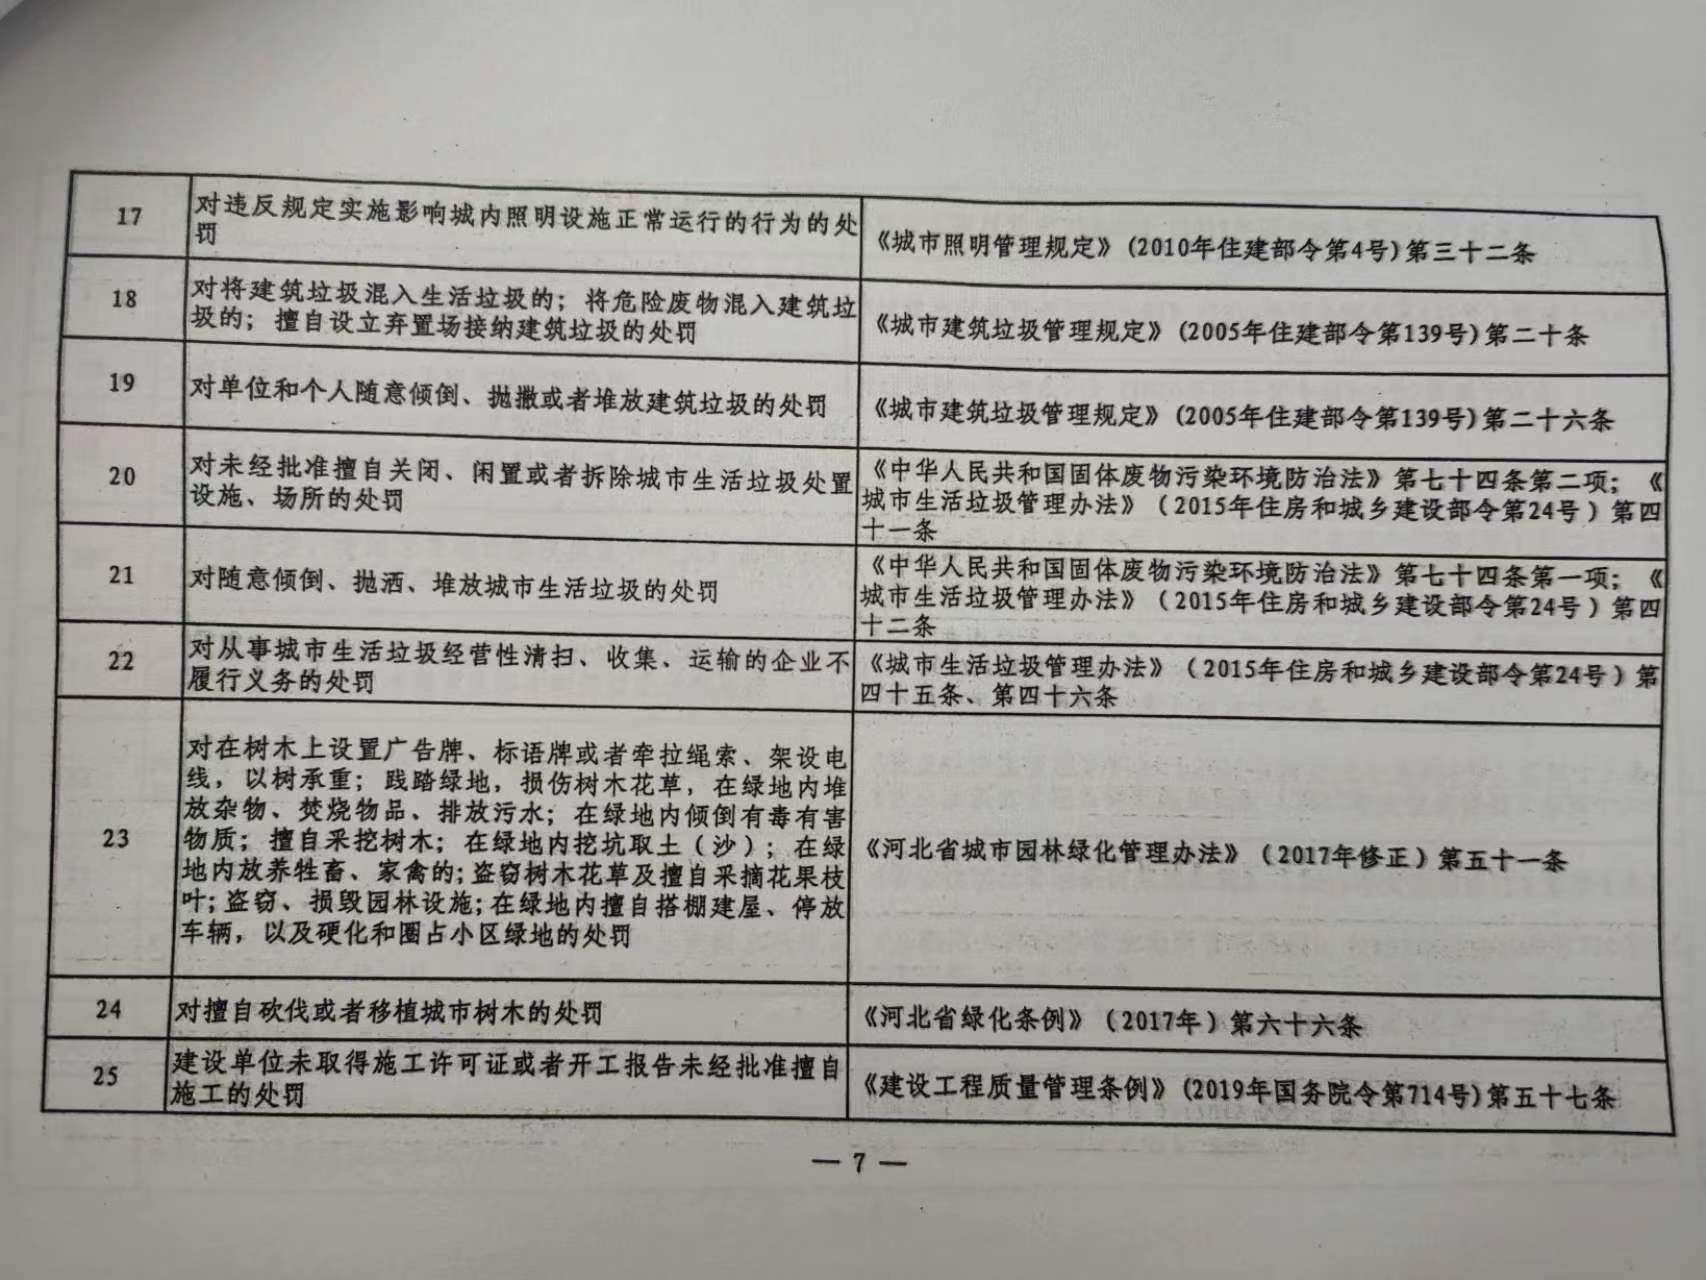 17
对违反规定实施影响城内照明设施正常运行的行为的处
罚
《城市照明管理规定》(2010年住建部令第4号)第三十二条
18
对将建筑垃圾混入生活垃圾的；将危险废物混入建筑垃
圾的；擅自设立弃置场接纳建筑垃圾的处罚
《城市建筑垃圾管理规定》(2005年住建部令第139号)第二十条
19
对单位和个人随意倾倒、抛撒或者堆放建筑垃圾的处罚
《城市建筑垃圾管理规定》(2005年住建部令第139号)第二十六条
20
对未经批准擅自关闭、闲置或者拆除城市生活垃圾处置
设施、场所的处罚
《中华人民共和国固体废物污染环境防治法》第七十四条第二项；《
城市生活垃圾管理办法》（2015年住房和城乡建设部令第24号）第四
十一条
21
对随意倾倒、抛洒、堆放城市生活垃圾的处罚
《中华人民共和国固体废物污染环境防治法》第七十四条第一项；《
城市生活垃圾管理办法》（2015年住房和城乡建设部令第24号）第四
十二条
22
对从事城市生活垃圾经营性清扫、收集、运输的企业不
履行义务的处罚
《城市生活垃圾管理办法》（2015年住房和城乡建设部令第24号）第
四十五条、第四十六条
23
对在树木上设置广告牌、标语牌或者牵拉绳索、架设电
线，以树承重；践踏绿地，损伤树木花草，在绿地内堆
放杂物、焚烧物品、排放污水；在绿地内倾倒有毒有害
物质；擅自采挖树木；在绿地内挖坑取土（沙）；在绿
地内放养牲畜、家禽的;盗窃树木花草及擅自采摘花果枝
叶;盗窃、损毁园林设施;在绿地内擅自搭棚建屋、停放
车辆，以及硬化和圈占小区绿地的处罚
《河北省城市园林绿化管理办法》（2017年修正）第五十一条
24
对擅自砍伐或者移植城市树木的处罚
《河北省绿化条例》（2017年）第六十六条
25
建设单位未取得施工许可证或者开工报告未经批准擅自
施工的处罚
《建设工程质量管理条例》(2019年国务院令第714号)第五十七条
— 7 —